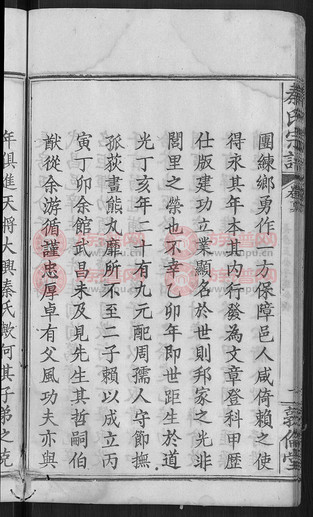 秦氏宗譜
卷首
敦倫堂
團練鄉勇作一方保障邑人咸倚賴之使
得永其年本其内行發為文章登科甲歷
仕版建功立業顯名於世則邦家之光非
閭里之榮也不幸乙卯年即世距生於道
光丁亥年二十有九元配周孺人守節撫
孤荻畫熊丸靡所不至二子賴以成立丙
寅丁卯余館武昌未及見先生其哲嗣伯
猷從余游循謹忠厚卓有父風功夫亦與
年俱進天將大興秦氏歟何其子弟之克